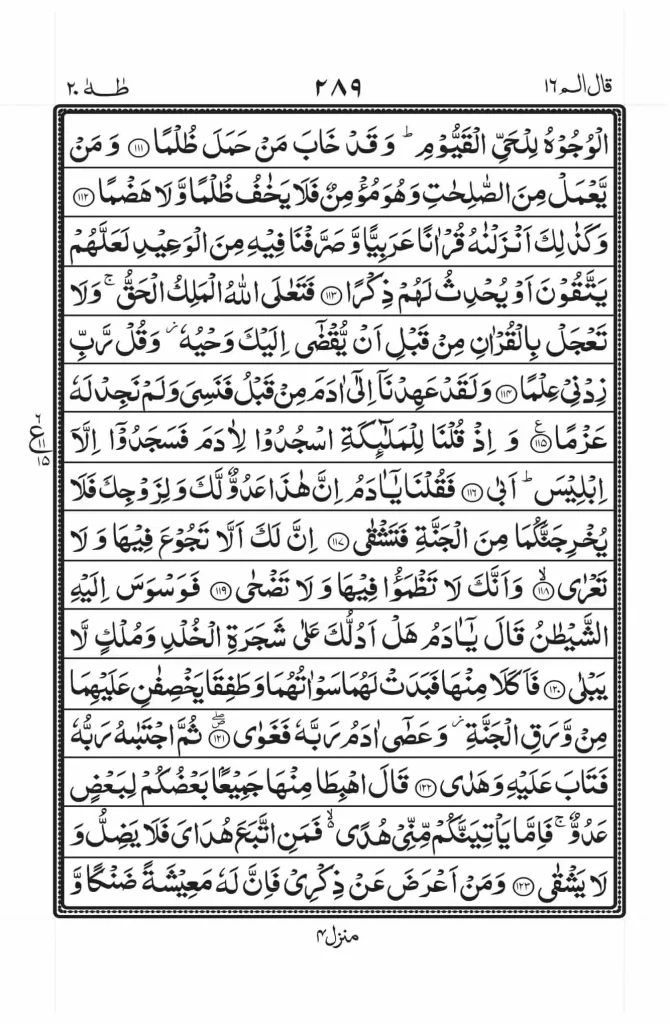 قال الم ١٦
٢٨٩
طٰهٰ ٢٠
الْوُجُوْهُ لِلْحَيِّ الْقَيُّوْمِ ؕ وَ قَدْ خَابَ مَنْ حَمَلَ ظُلْمًا ﴿۱۱۱﴾ وَ مَنْ
يَّعْمَلْ مِنَ الصّٰلِحٰتِ وَهُوَ مُؤْمِنٌ فَلَا يَخٰفُ ظُلْمًا وَّ لَا هَضْمًا ﴿۱۱۲﴾
وَكَذٰلِكَ اَنْزَلْنٰهُ قُرْاٰنًا عَرَبِيًّا وَّ صَرَّفْنَا فِيْهِ مِنَ الْوَعِيْدِ لَعَلَّهُمْ
يَتَّقُوْنَ اَوْ يُحْدِثُ لَهُمْ ذِكْرًا ﴿۱۱۳﴾ فَتَعٰلَى اللّٰهُ الْمَلِكُ الْحَقُّ ۚ وَلَا
تَعْجَلْ بِالْقُرْاٰنِ مِنْ قَبْلِ اَنْ يُّقْضٰۤى اِلَيْكَ وَحْيُهٗ ؗ وَقُلْ رَّبِّ
زِدْنِيْ عِلْمًا ﴿۱۱۴﴾ وَلَقَدْ عَهِدْنَاۤ اِلٰۤى اٰدَمَ مِنْ قَبْلُ فَنَسِيَ وَلَمْ نَجِدْ لَهٗ
عَزْمًا ﴿۱۱۵﴾ ع وَ اِذْ قُلْنَا لِلْمَلٰٓئِكَةِ اسْجُدُوْا لِاٰدَمَ فَسَجَدُوْۤا اِلَّاۤ
٦ ع ١١ ١٥
اِبْلِيْسَ ؕ اَبٰى ﴿۱۱۶﴾ فَقُلْنَا يٰۤاٰدَمُ اِنَّ هٰذَا عَدُوٌّ لَّكَ وَ لِزَوْجِكَ فَلَا
يُخْرِجَنَّكُمَا مِنَ الْجَنَّةِ فَتَشْقٰى ﴿۱۱۷﴾ اِنَّ لَكَ اَلَّا تَجُوْعَ فِيْهَا وَ لَا
تَعْرٰى ﴿۱۱۸﴾ۙ وَاَنَّكَ لَا تَظْمَؤُا فِيْهَا وَ لَا تَضْحٰى ﴿۱۱۹﴾ فَوَسْوَسَ اِلَيْهِ
الشَّيْطٰنُ قَالَ يٰۤاٰدَمُ هَلْ اَدُلُّكَ عَلٰى شَجَرَةِ الْخُلْدِ وَمُلْكٍ لَّا
يَبْلٰى ﴿۱۲۰﴾ فَاَكَلَا مِنْهَا فَبَدَتْ لَهُمَا سَوْاٰتُهُمَا وَطَفِقَا يَخْصِفٰنِ عَلَيْهِمَا
مِنْ وَّرَقِ الْجَنَّةِ ؗ وَعَصٰۤى اٰدَمُ رَبَّهٗ فَغَوٰى ﴿۱۲۱﴾۪ۖ ثُمَّ اجْتَبٰهُ رَبُّهٗ
فَتَابَ عَلَيْهِ وَهَدٰى ﴿۱۲۲﴾ قَالَ اهْبِطَا مِنْهَا جَمِيْعًاۢ بَعْضُكُمْ لِبَعْضٍ
عَدُوٌّ ۚ فَاِمَّا يَاْتِيَنَّكُمْ مِّنِّيْ هُدًى ۙ فَمَنِ اتَّبَعَ هُدَايَ فَلَا يَضِلُّ وَ
لَا يَشْقٰى ﴿۱۲۳﴾ وَمَنْ اَعْرَضَ عَنْ ذِكْرِيْ فَاِنَّ لَهٗ مَعِيْشَةً ضَنْكًا وَّ
منزل ٤